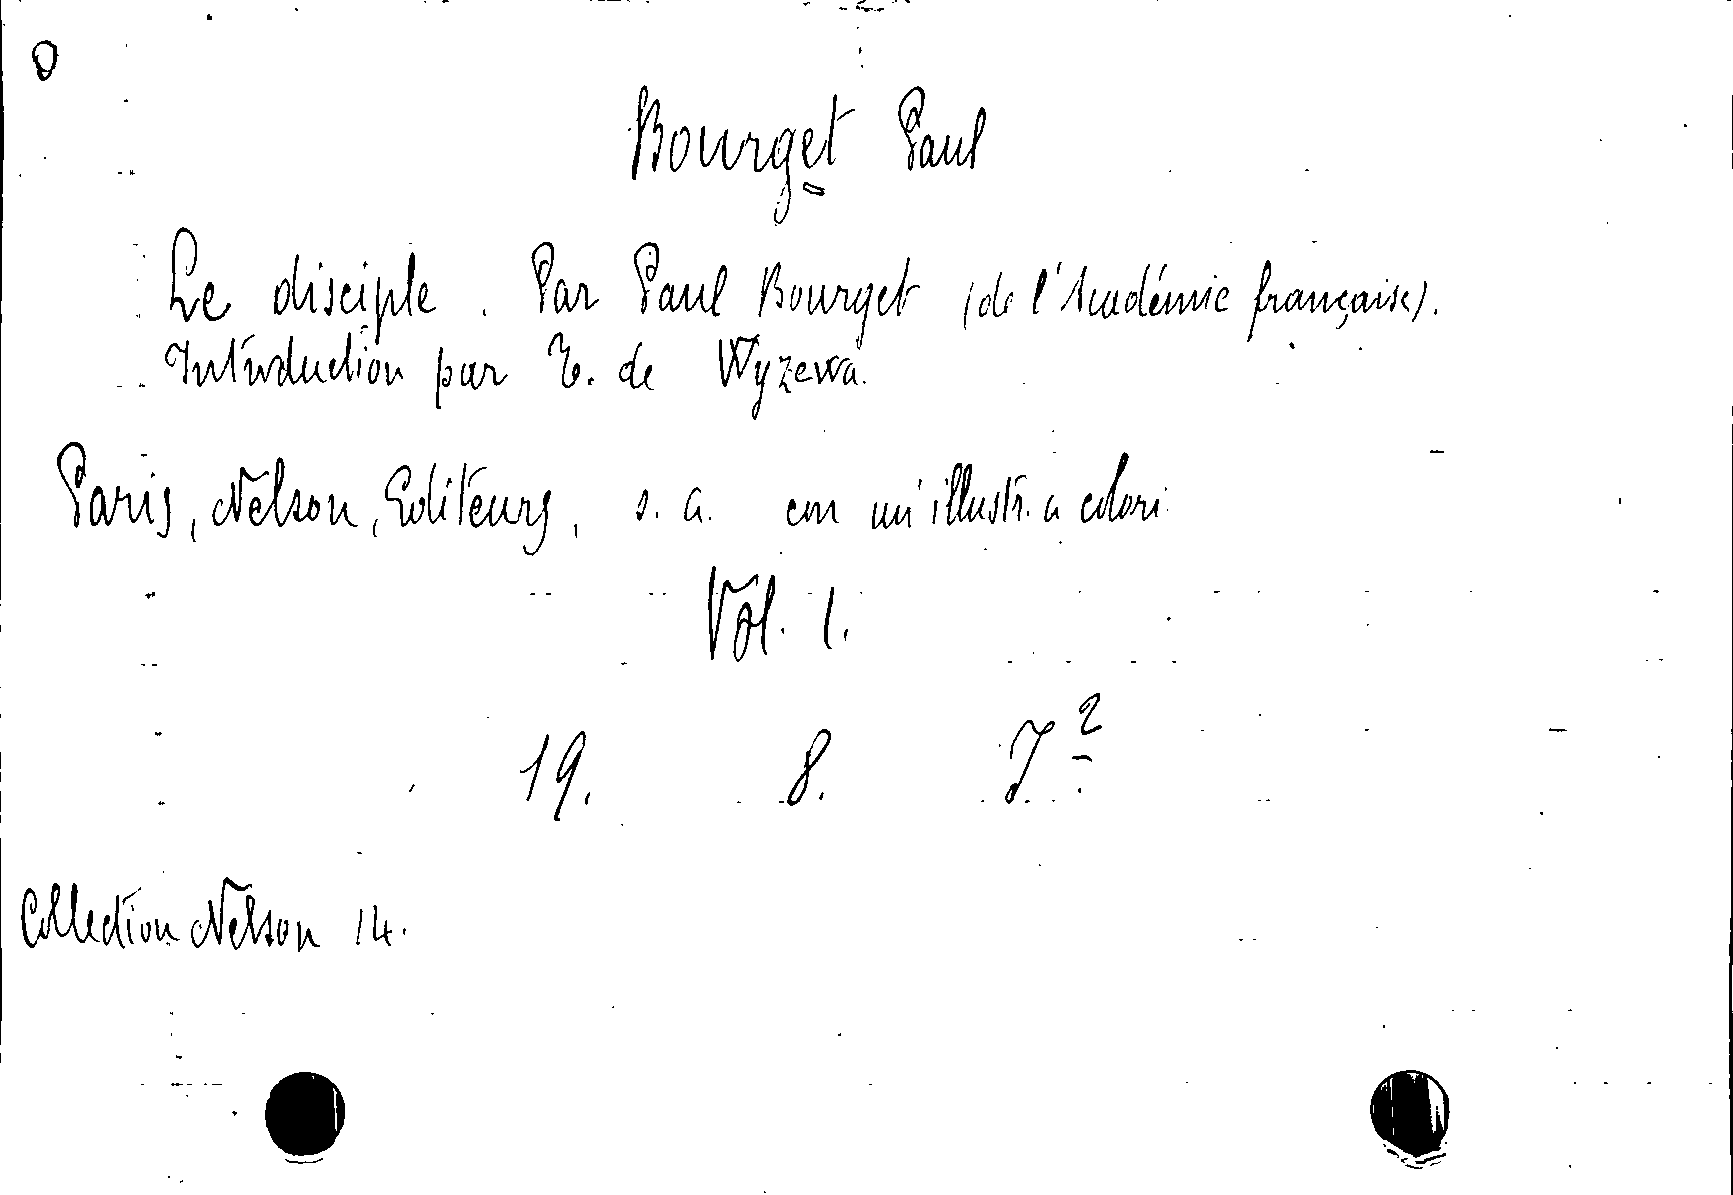 Bourget Paul
Le disciple. Par Paul Bourget (de l'Académie française).
Introduction par T. de Wyzewa.
Paris, Nelson, Editeurs, s. a. con un'illustr. a colori.
Vol. 1.
19. 8. 7²
Collection Nelson 14.